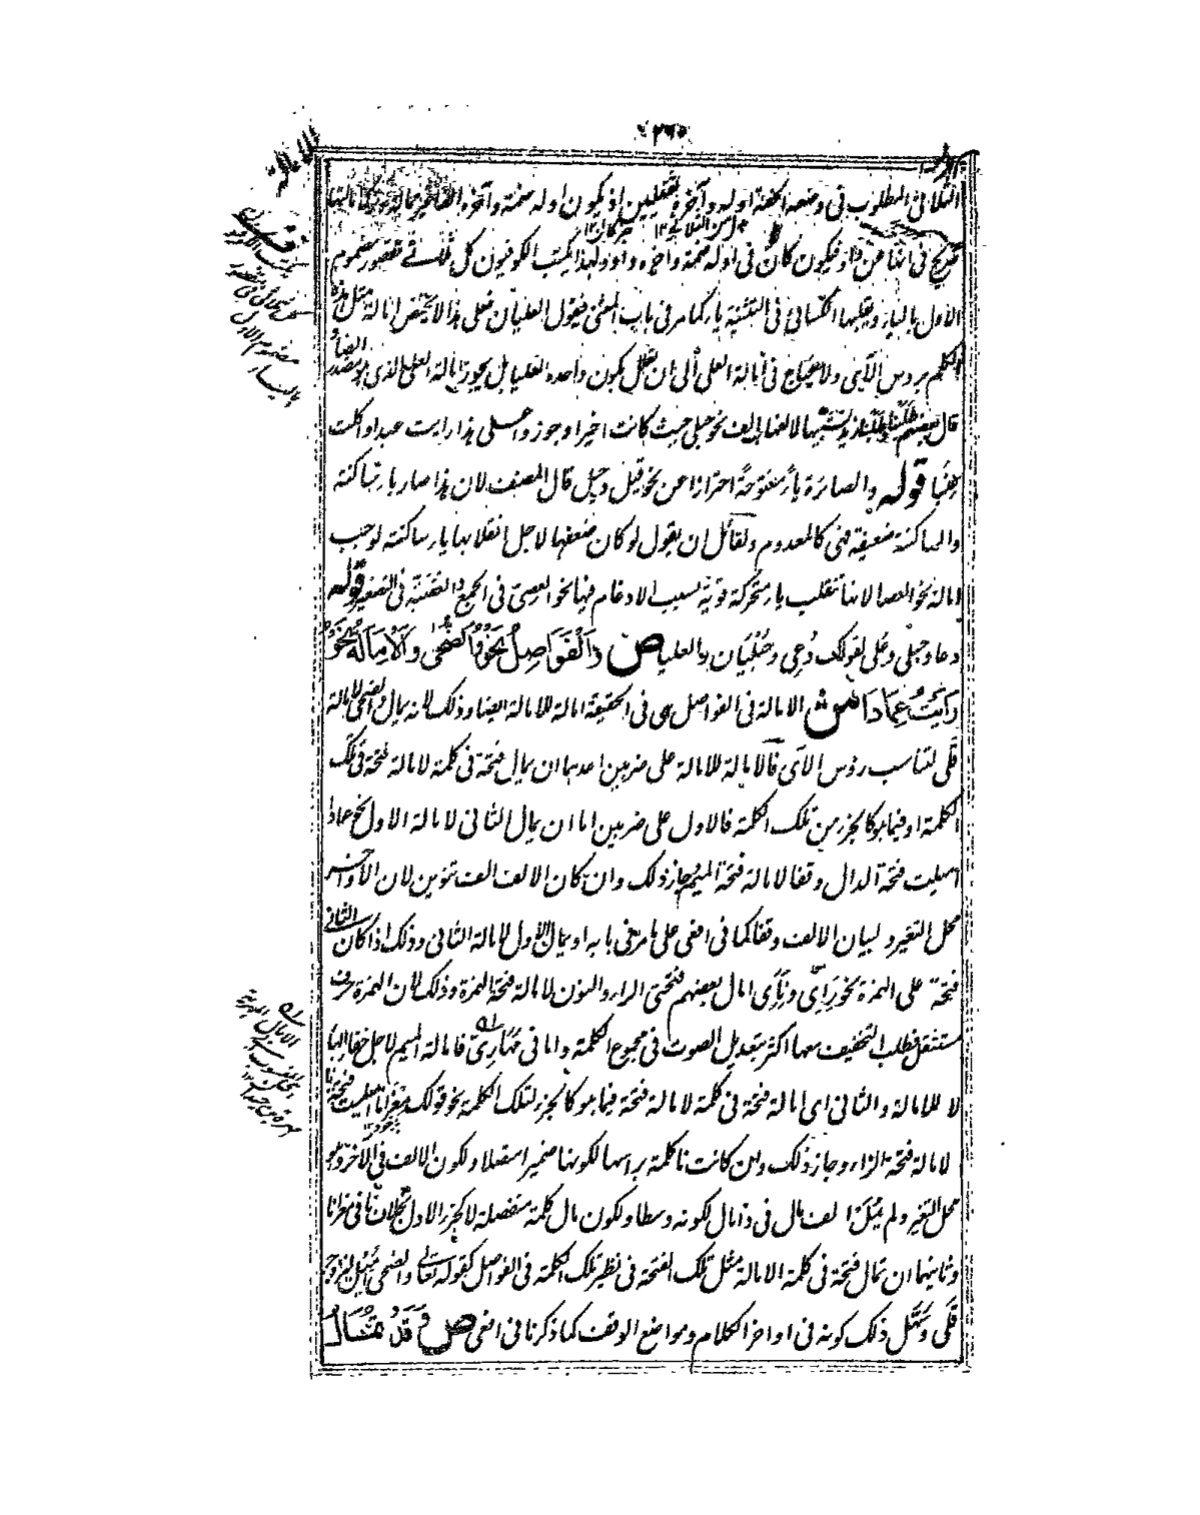 ٢٦٥
الامالة
الثلاثى المطلوب فى وضعه الخفة اوله وآخره ثقيلين اذ يكون اوله ضمة وآخره
فى انها عن واو فيكون كان فى اوله ضمة وآخره واو ولهذا يكتب الكوفيون كل ثلاثى مقصور مضموم
الاول بالياء ويقلبها الكسائى فى التثنية ياء كما مر فى باب المثنى فيقول العليان فعلى هذا لا يختص امالة مثل هذا
الكلم برؤس الآى ولا يحتاج فى امالة العلى الى ان يعلل بكون واحده العليا بل يجوز امالة العلى الذى هو مصدر ايضا
قال بعضهم لالفها بالف نحو حبلى حيث كانت اخيرا وجوز على هذا رايت عبدا واكلت
عنبا قوله والصائرة ياء مفتوحة احترازا عن نحو قيل وحيل قال المصنف لان هذا صار ياء ساكنة
والساكنة ضعيفة فهى كالمعدوم ولقائل ان يقول لو كان ضعفها لاجل انقلابها ياء ساكنة لوجب
امالة نحو العصا لانها تنقلب ياء متحركة قوية بسبب الادغام فيها نحو العصى فى الجمع والعصية فى التصغير قوله
دعا وحبلى وعلى لقولك دعى وحبليان والعليا ص والفواصل نحو والضحى والامالة نحو
رايت عمادا ش الامالة فى الفواصل هى فى الحقيقة امالة للامالة ايضا وذلك لانه يمال الضحى لامالة
قلى لتناسب رؤس الآى فالامالة للامالة على ضربين احدهما ان يمال فتحة فى كلمة لامالة فتحة فى تلك
الكلمة او فيما هو كالجزء من تلك الكلمة فالاول على ضربين اما ان يمال الثانى لامالة الاول نحو عمادا
اميلت فتحة الدال وقفا لامالة فتحة الميم وجاز ذلك وان كان الالف الف تنوين لان الاواخر
محل التغير ولبيان الالف وقفا كما فى افعى على ما مر فى بابه او يمال الاول لامالة الثانى وذلك اذا كان الثانى
فتحة على الهمزة نحو راى ونآى امال بعضهم فتحتى الراء والنون لامالة فتحة الهمزة وذلك لان الهمزة حرف
مستثقل فطلب التخفيف معها اكثر بتعديل الصوت فى مجموع الكلمة واما فى مهارى فامالة الميم لاجل خفاء الهاء
لا للامالة والثانى اى امالة فتحة فى كلمة لامالة فتحة فيما هو كالجزء لتلك الكلمة نحو قولك معزانا اميلت فتحة نا
لامالة فتحة الزاء وجاز ذلك وان كانت نا كلمة براسها لكونها ضميرا متصلا ولكون الالف فى الآخر وهو
محل التغير ولم يمل الف مال فى ذا مال لكونه وسطا ولكون مال كلمة منفصلة لا كجزء الاول بخلاف نا فى معزانا
وثانيهما ان تمال فتحة فى كلمة لامالة مثل تلك الفتحة فى نظير تلك الكلمة فى الفواصل كقوله تعالى والضحى اميل ليزاوج
قلى وسهل ذلك كونه فى اواخر الكلام ومواضع الوقف كما ذكرنا فى افعى ص وقد تمال